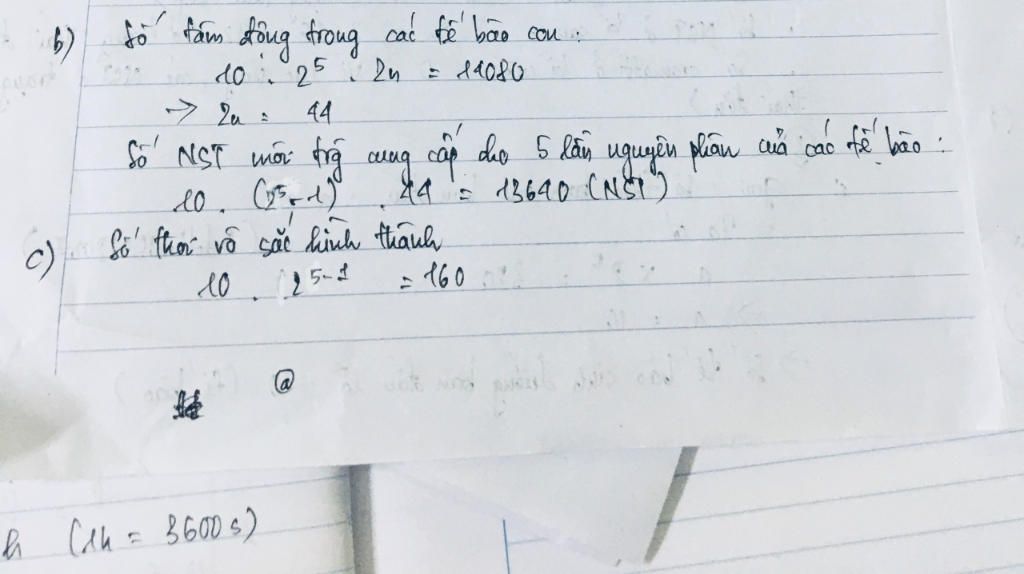 b) Số tâm động trong các tế bào con :
10 . 2^5 . 2n = 14080
→ 2n = 44
Số NST môi trg cung cấp cho 5 lần nguyên phân của các tế bào :
10 . (2^5 - 1) . 44 = 13640 (NST)
c) Số thoi vô sắc hình thành
10 . 2^5-1 = 160
@
h (1h = 3600s)